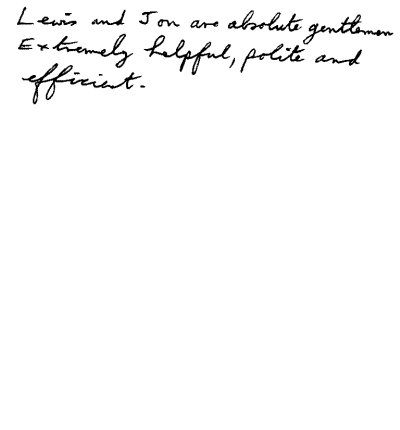 Lewis and Jon are absolute gentlemen
Extremely helpful, polite and
efficient.